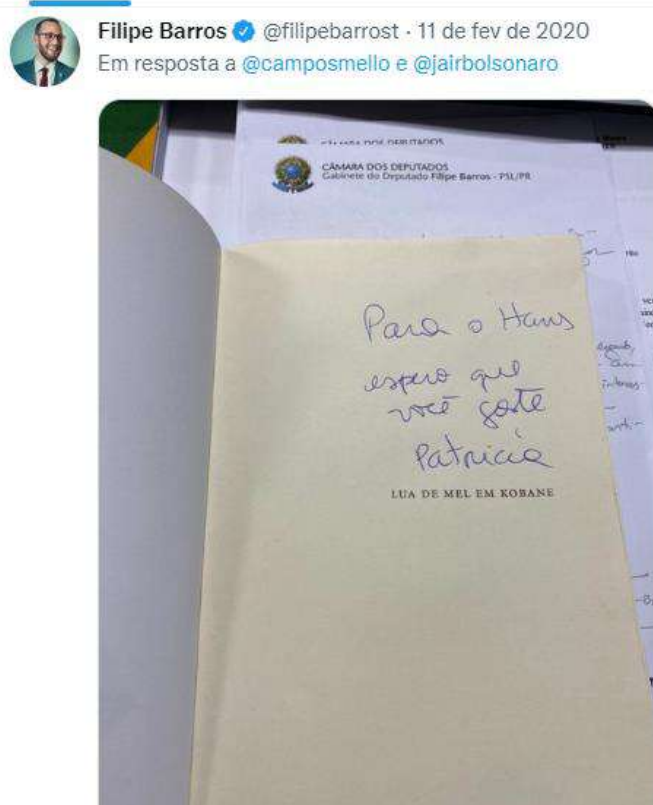 Filipe Barros @filipebarrost · 11 de fev de 2020
Em resposta a @camposmello e @jairbolsonaro
CÂMARA DOS DEPUTADOS
CÂMARA DOS DEPUTADOS
Gabinete do Deputado Filipe Barros - PSL/PR
Para o Hans
espero que
você goste
Patricia
LUA DE MEL EM KOBANE